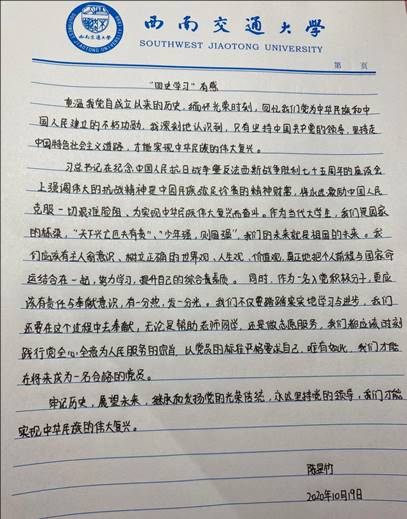 西南交通大学
SOUTHWEST JIAOTONG UNIVERSITY
第 页
“四史学习”有感
重温我党自成立以来的历史，缅怀光荣时刻，回忆我们党为中华民族和中
国人民建立的不朽功勋，我深刻地认识到，只有坚持中国共产党的领导，坚持走
中国特色社会主义道路，才能实现中华民族的伟大复兴。
习总书记在纪念中国人民抗日战争暨反法西斯战争胜利七十五周年的座谈会
上强调伟大的抗战精神是中国民族弥足珍贵的精神财富，将永远激励中国人民
克服一切艰难险阻，为实现中华民族伟大复兴而奋斗。作为当代大学生，我们是国家
的栋梁，“天下兴亡匹夫有责”、“少年强，则国强”，我们的未来就是祖国的未来。我
们应该有主人翁意识，树立正确的世界观、人生观、价值观，真正地把个人前途与国家命
运结合在一起，努力学习，提升自己的综合素质。同时，作为一名入党积极分子，更应
该有责任与奉献意识，有一分热，发一分光。我们不仅要踏踏实实地学习与进步，我们
还要在这个过程中去奉献，无论是帮助老师同学，还是做志愿服务，我们都应该时刻
践行全心全意为人民服务的宗旨，以党员的标准严格要求自己，唯有如此，我们才能
在将来成为一名合格的党员。
牢记历史，展望未来，继承和发扬党的光荣传统，永远坚持党的领导，我们才能
实现中华民族的伟大复兴。
2020年10月19日